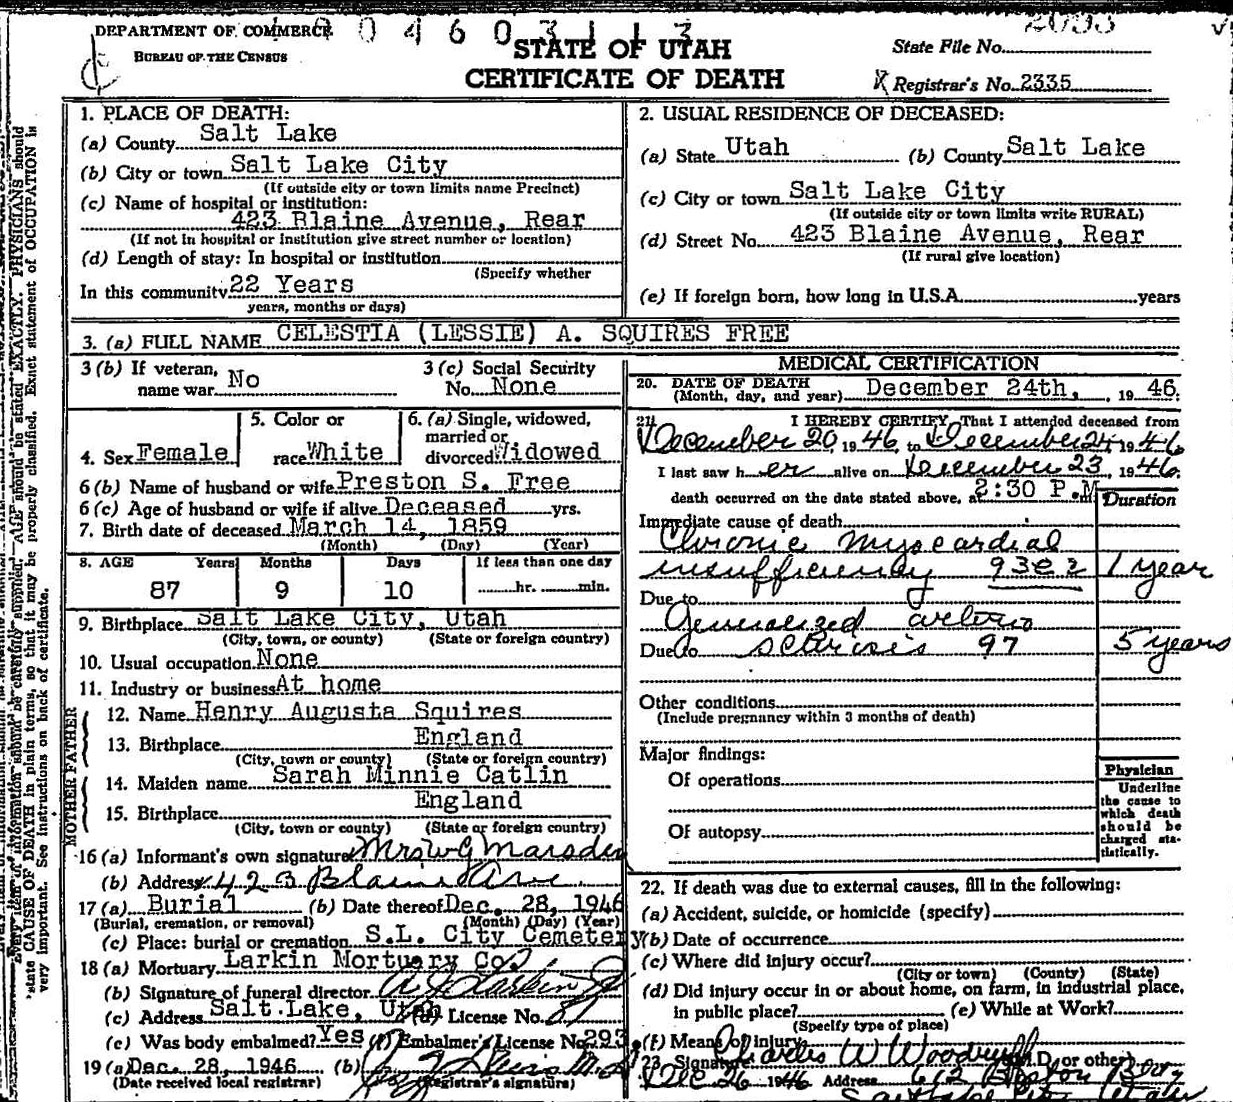 DEPARTMENT OF COMMERCE
BUREAU OF THE CENSUS
0 4 6 0 3 1 1 3
STATE OF UTAH
CERTIFICATE OF DEATH
State File No.
Registrar's No. 2335
1. PLACE OF DEATH:
(a) County Salt Lake
(b) City or town Salt Lake City
(If outside city or town limits name Precinct)
(c) Name of hospital or institution:
423 Blaine Avenue, Rear
(If not in hospital or institution give street number or location)
(d) Length of stay: In hospital or institution
(Specify whether
In this community 22 Years
years, months or days)
2. USUAL RESIDENCE OF DECEASED:
(a) State Utah (b) County Salt Lake
(c) City or town Salt Lake City
(If outside city or town limits write RURAL)
(d) Street No. 423 Blaine Avenue, Rear
(If rural give location)
(e) If foreign born, how long in U.S.A. years
3. (a) FULL NAME CELESTIA (LESSIE) A. SQUIRES FREE
3 (b) If veteran, name war No
3 (c) Social Security No. None
4. Sex Female
5. Color or race White
6. (a) Single, widowed, married or divorced Widowed
6 (b) Name of husband or wife Preston S. Free
6 (c) Age of husband or wife if alive Deceased yrs.
7. Birth date of deceased March 14, 1859
(Month) (Day) (Year)
8. AGE Years Months Days If less than one day
87 9 10 hr. min.
9. Birthplace Salt Lake City, Utah
(City, town, or county) (State or foreign country)
10. Usual occupation None
11. Industry or business At home
FATHER
12. Name Henry Augusta Squires
13. Birthplace England
(City, town or county) (State or foreign country)
MOTHER
14. Maiden name Sarah Minnie Catlin
15. Birthplace England
(City, town or county) (State or foreign country)
16 (a) Informant's own signature Mrs W G Marsden
(b) Address 423 Blaine Ave.
17 (a) Burial (b) Date thereof Dec. 28, 1946
(Burial, cremation, or removal) (Month) (Day) (Year)
(c) Place: burial or cremation S.L. City Cemetery
18 (a) Mortuary Larkin Mortuary Co.
(b) Signature of funeral director
(c) Address Salt Lake, Utah (d) License No.
(e) Was body embalmed? Yes (f) Embalmer's License No. 293
19 (a) Dec. 28, 1946 (b)
(Date received local registrar) (Registrar's signature)
MEDICAL CERTIFICATION
20. DATE OF DEATH
(Month, day, and year) December 24th, 1946.
21. I HEREBY CERTIFY, That I attended deceased from
December 20, 1946, to December 24, 1946
I last saw her alive on December 23, 1946.
death occurred on the date stated above, at 2:30 P.M
Duration
Immediate cause of death
Chronic myocardial
insufficiency 93e2 1 year
Due to
Generalized arterio
Due to sclerosis 97 5 years
Other conditions
(Include pregnancy within 3 months of death)
Major findings:
Of operations
Of autopsy
Physician
Underline
the cause to
which death
should be
charged sta-
tistically.
22. If death was due to external causes, fill in the following:
(a) Accident, suicide, or homicide (specify)
(b) Date of occurrence
(c) Where did injury occur?
(City or town) (County) (State)
(d) Did injury occur in or about home, on farm, in industrial place,
in public place? (e) While at Work?
(Specify type of place)
(f) Means of injury
23. Signature Charles W Woodruff M.D. or other)
Dec 26 1946 Address 612 Boston Bldg
Salt Lake City Utah